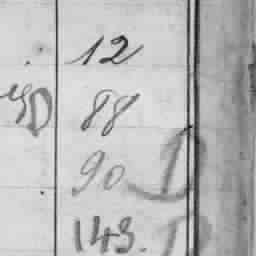 12
88
90 D
143.